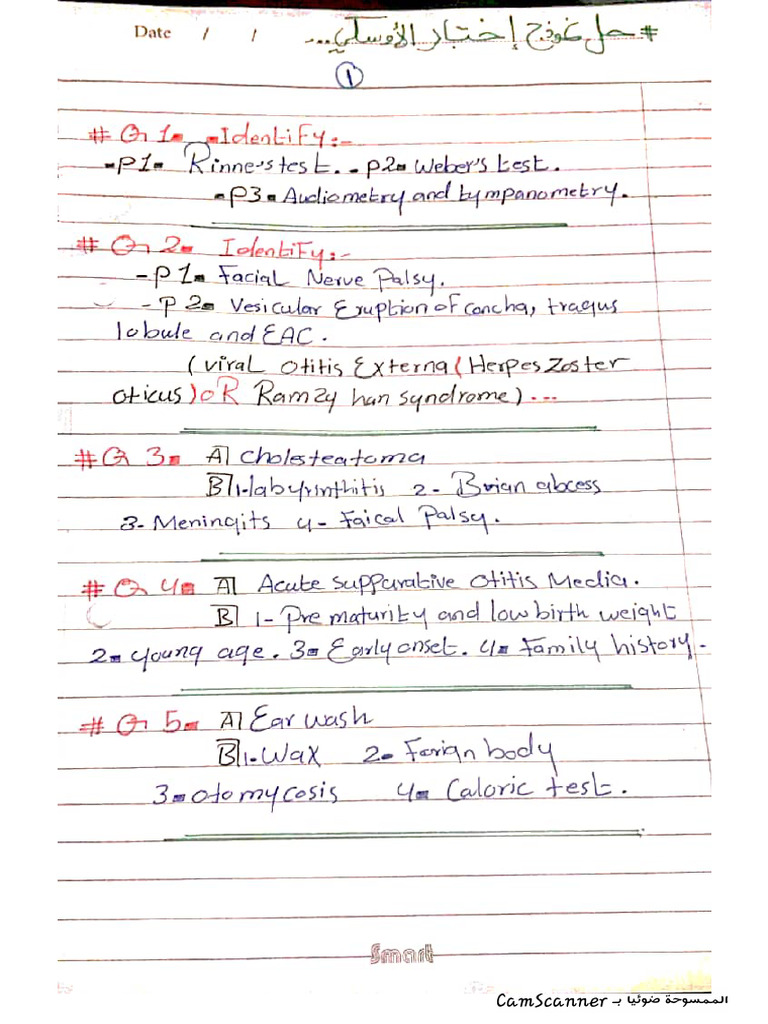 Date / / # حل نموذج إختبار الأوسكي...
1
# Q 1- - Identify:-
-P1- Rinne's test. - P2- Weber's test.
- P3- Audiometry and tympanometry.
# Q 2- Identify:-
- P1- Facial Nerve Palsy.
- P2- Vesicular Eruption of concha, tragus
lobule and EAC.
(viral otitis Externa (Herpes Zoster
oticus) oR Ramzy han syndrome)...
# Q 3- A| cholesteatoma
B| 1-labyrinthitis 2- Brian abcess
3- Meningits 4- Faical Palsy.
# Q 4- A| Acute suppurative otitis Media.
B| 1- Pre maturity and low birth weight
2- young age. 3- Early onset. 4- Family history.
# Q 5- A| Ear wash
B| 1- Wax 2- Forign body
3- otomycosis 4- Caloric test.
Smart
الممسوحة ضوئيا بـ CamScanner